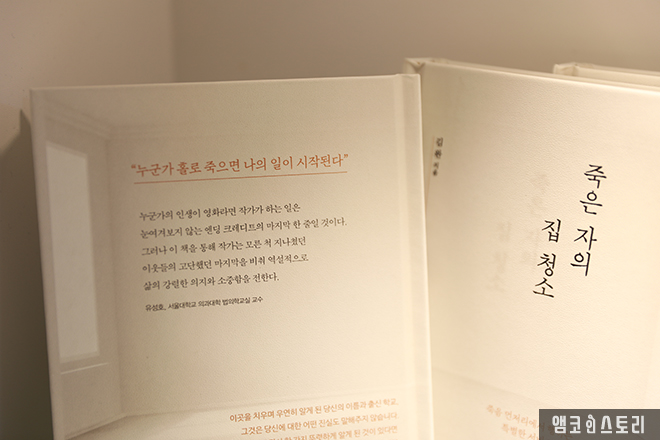 "누군가 홀로 죽으면 나의 일이 시작된다"
누군가의 인생이 영화라면 작가가 하는 일은
눈여겨보지 않는 엔딩 크레디트의 마지막 한 줄일 것이다.
그러나 이 책을 통해 작가는 모른 척 지나쳤던
이웃들의 고단했던 마지막을 비춰 역설적으로
삶의 강렬한 의지와 소중함을 전한다.
유성호_ 서울대학교 의과대학 법의학교실 교수
이곳을 치우며 우연히 알게 된 당신의 이름과 출신 학교,
그것은 당신에 대한 어떤 진실도 말해주지 않습니다.
김완 지음
죽은 자의
집 청소
죽음 언저리에서
특별한
앰코인스토리